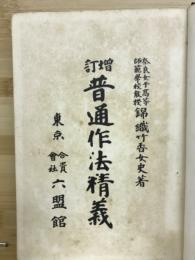 奈良女子高等
師範學校教授
錦織竹香女史著
增訂
普通作法精義
東京
合資
會社
六盟館